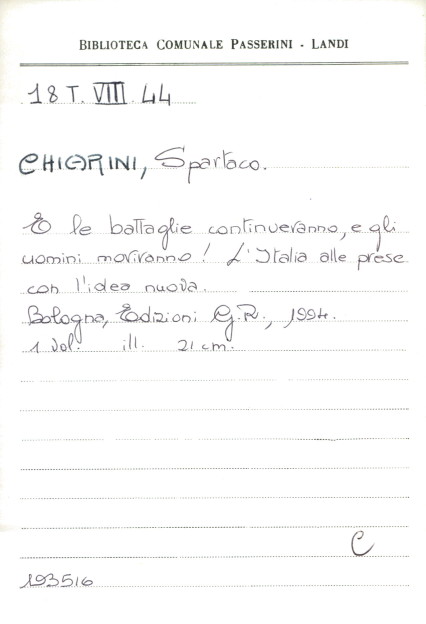 BIBLIOTECA COMUNALE PASSERINI - LANDI
18 T. VIII. 44
CHIARINI, Spartaco.
E le battaglie continueranno, e gli
uomini moriranno! L'Italia alle prese
con l'idea nuova.
Bologna, Edizioni G.R., 1994.
1 vol. ill. 21 cm.
C
193516